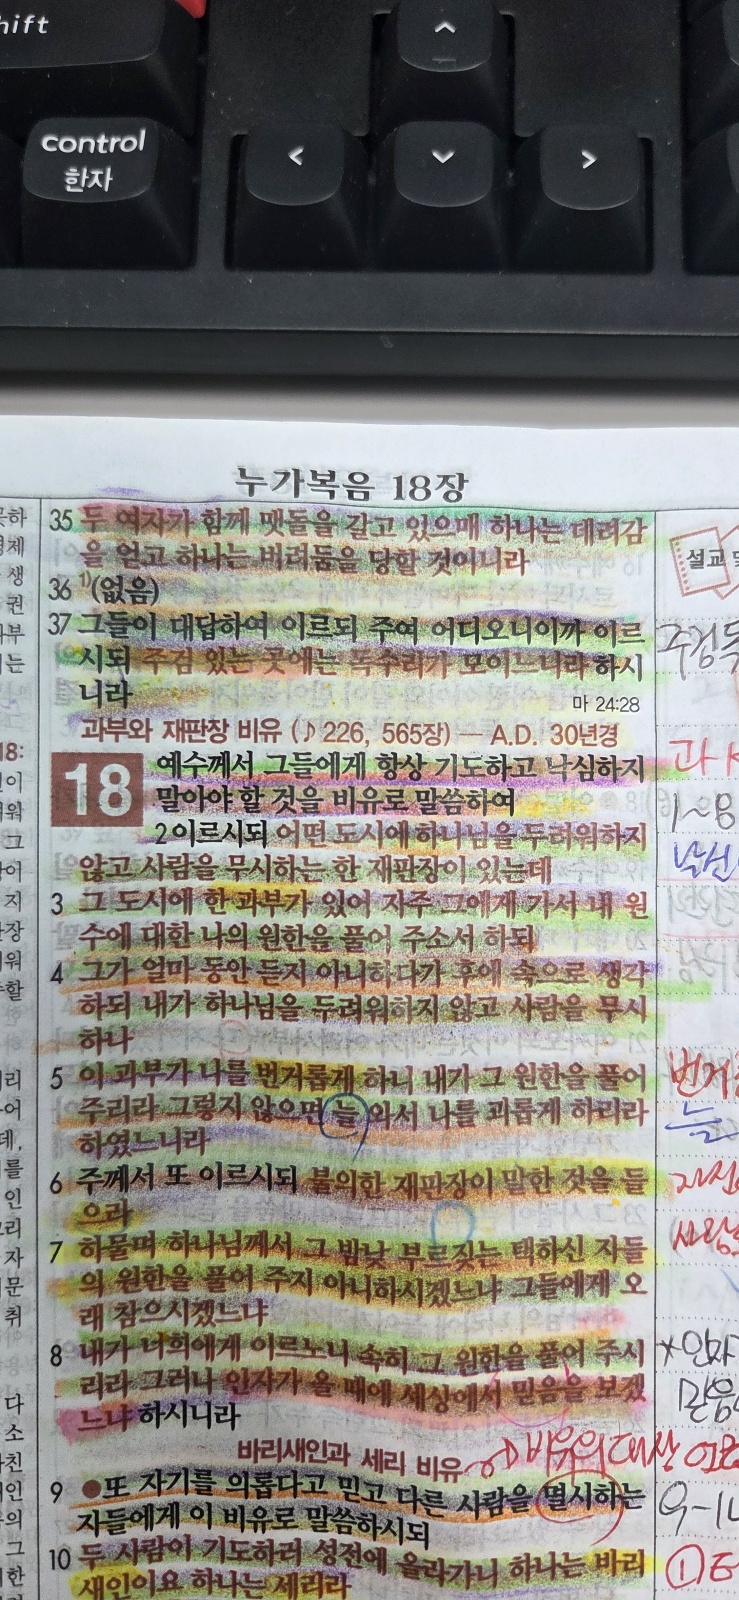 hift
control
한자
누가복음 18장
35 두 여자가 함께 맷돌을 갈고 있으매 하나는 데려감
을 얻고 하나는 버려둠을 당할 것이니라
36 1)(없음)
37 그들이 대답하여 이르되 주여 어디오니이까 이르
시되 주검 있는 곳에는 독수리가 모이느니라 하시
니라
마 24:28
과부와 재판장 비유 (♪226, 565장) — A.D. 30년경
18 예수께서 그들에게 항상 기도하고 낙심하지
말아야 할 것을 비유로 말씀하여
2 이르시되 어떤 도시에 하나님을 두려워하지
않고 사람을 무시하는 한 재판장이 있는데
3 그 도시에 한 과부가 있어 자주 그에게 가서 내 원
수에 대한 나의 원한을 풀어 주소서 하되
4 그가 얼마 동안 듣지 아니하다가 후에 속으로 생각
하되 내가 하나님을 두려워하지 않고 사람을 무시
하나
5 이 과부가 나를 번거롭게 하니 내가 그 원한을 풀어
주리라 그렇지 않으면 늘 와서 나를 괴롭게 하리라
하였느니라
6 주께서 또 이르시되 불의한 재판장이 말한 것을 들
으라
7 하물며 하나님께서 그 밤낮 부르짖는 택하신 자들
의 원한을 풀어 주지 아니하시겠느냐 그들에게 오
래 참으시겠느냐
8 내가 너희에게 이르노니 속히 그 원한을 풀어 주시
리라 그러나 인자가 올 때에 세상에서 믿음을 보겠
느냐 하시니라
바리새인과 세리 비유
9 ●또 자기를 의롭다고 믿고 다른 사람을 멸시하는
자들에게 이 비유로 말씀하시되
10 두 사람이 기도하러 성전에 올라가니 하나는 바리
새인이요 하나는 세리라
설교
1~8
늘
비유의 대상
①